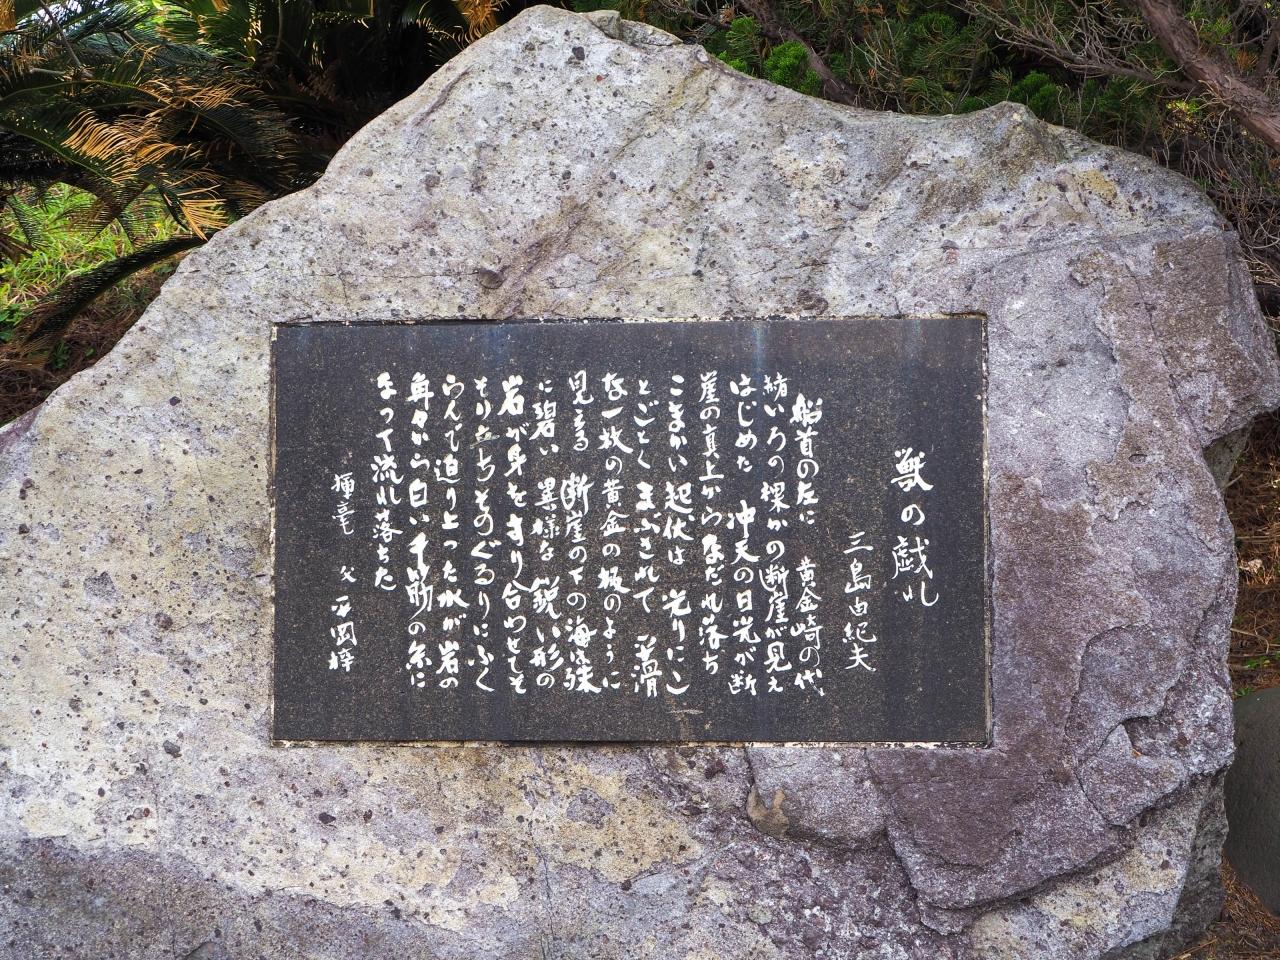 獣の戯れ
三島由紀夫
船首の左に 黄金崎の代
赭いろの裸かの断崖が見え
はじめた 沖天の日光が断
崖の真上からなだれ落ち
こまかい起伏は 光りにこ
とごとくまぶされて 平滑
な一枚の黄金の板のように
見える 断崖の下の海は殊
に碧い 異様な鋭い形の
岩が身をすり合わせてそ
そり立ちそのぐるりにふく
らんで迫り上った水が岩の
角々から白い千筋の糸に
なって流れ落ちた
揮毫 父 平岡梓